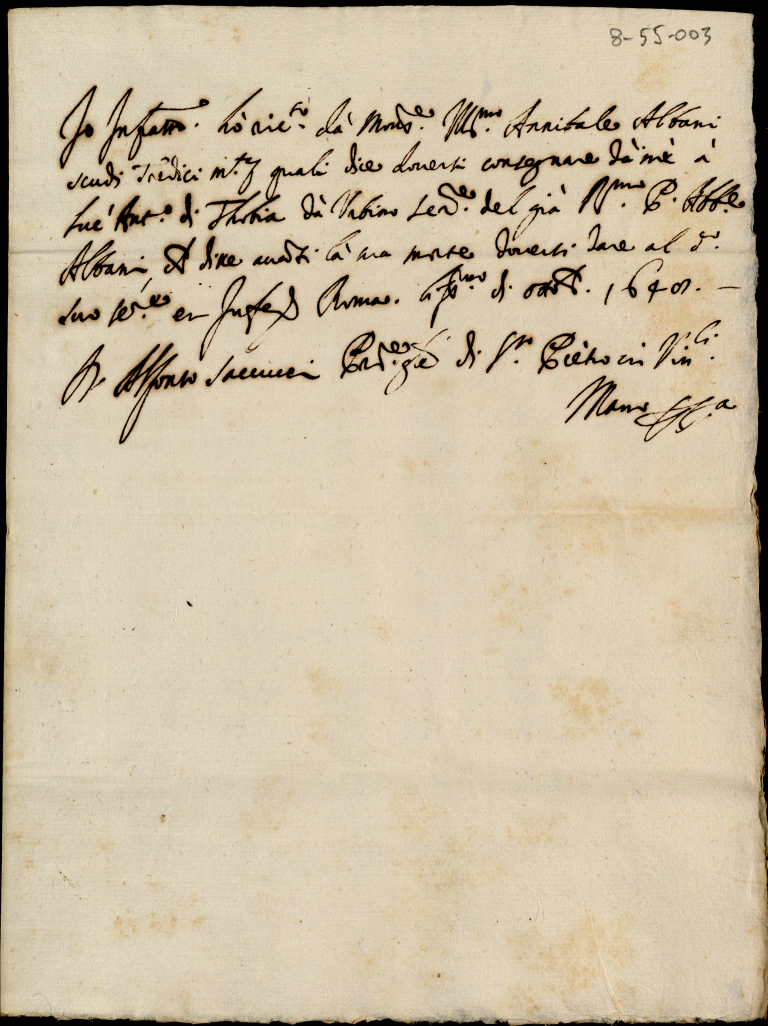 8-55-003
Io Infratto. hò ric.to da Mons.e Ill.mo Annibale Albani
scudi Tredici m.ta quali dice doversi consegnare dà mè à
Ant.o di Thobia dà Urbino ser.e del già R.mo P. Abb.e
Albani, dice avanti la sua morte doversi dare al d.o
suo ser.e et In fede Roma. di ott. 1648. —
Fr. Alfonso Saccucci di S. Pietro in Vin.li
Mano